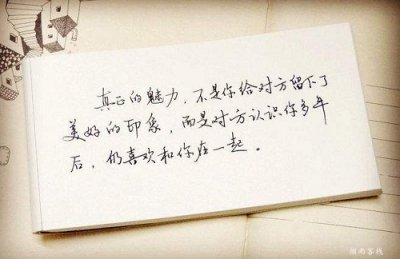 真正的魅力，不是你给对方留下了
美好的印象，而是对方认识你多年
后，仍喜欢和你在一起。
湖南客栈